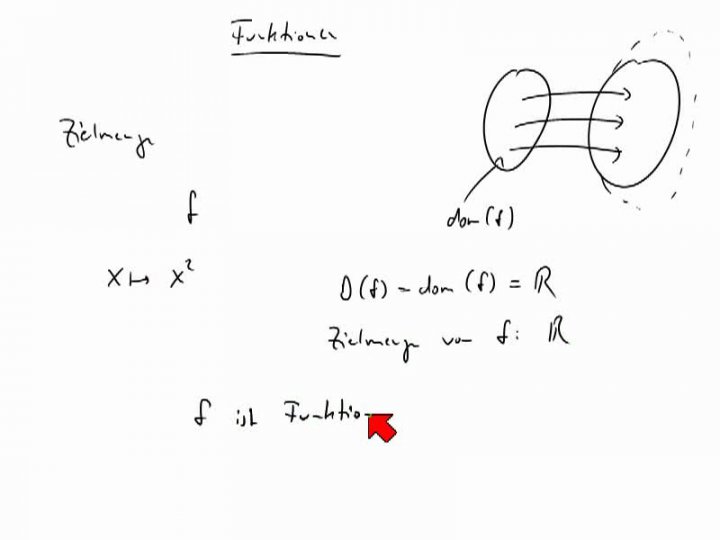 Funktionen
Zielmenge
dom(f)
f
x ↦ x²
D(f) = dom(f) = ℝ
Zielmenge von f: ℝ
f ist Funktion